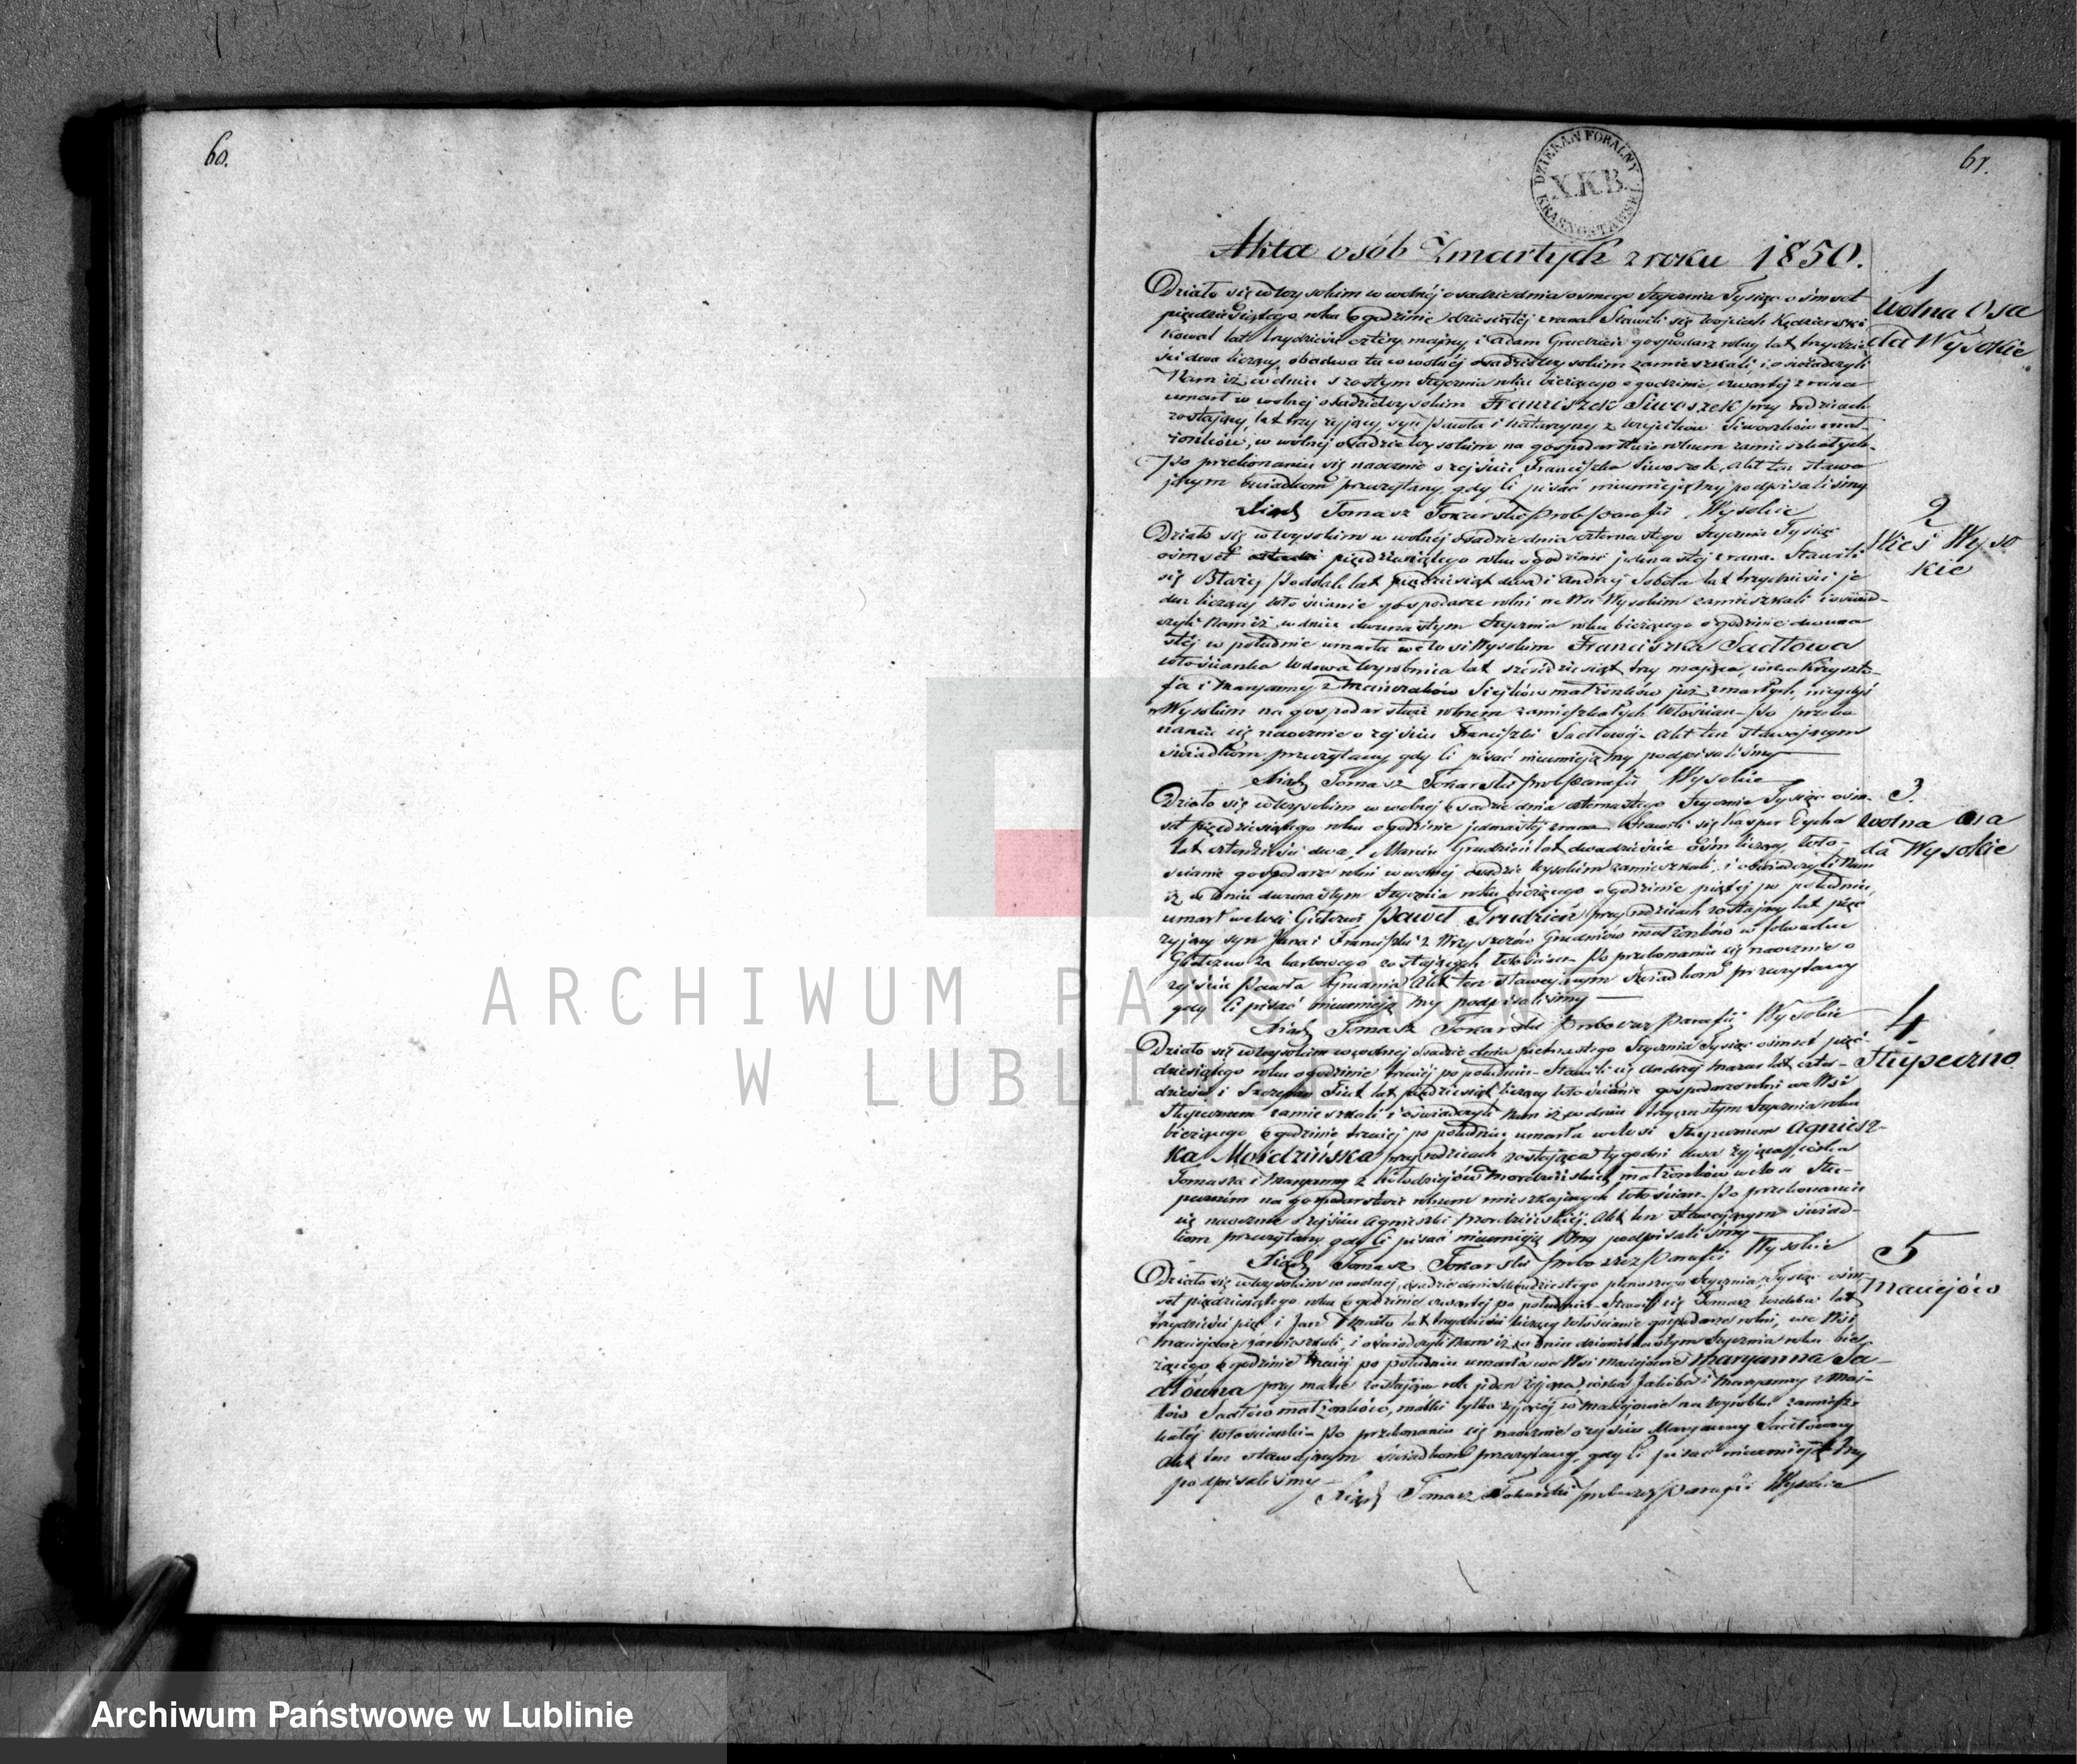 60.
61.
DZIEKAN FORALNY
X.K.B.
KRASNOSTAWSKI
Akta osób Zmarłych z roku 1850.
1
Wolna Osa
da Wysokie
Działo się w Wysokim w wolnéj osadzie dnia osmego Stycznia Tysiąc ośmset
pięćdziesiątego roku o godzinie dziesiątéj z rana Stawili się Wojciech Kędzierski
Kowal lat trzydzieści cztéry mający i Adam Grudzień gospodarz rolny lat trzydzie
ści dwa liczący obadwa tu w wolnéj osadzie Wysokim zamieszkali, i oświadczyli
Nam iż w dniu szóstym Stycznia roku bieżącego o godzinie czwartéj z rana
umarł w wolnéj osadzie Wysokim Franciszek Siwoszek przy rodzicach
zostający, lat trzy żyjący, syn Pawła i Katarzyny z Siwoszków mał-
żonków, w wolnéj osadzie Wysokim na gospodarstwie rolnem zamieszkałych.
Po przekonaniu się naocznie o zejściu Franciszka Siwoszek, Akt ten stawa
jącym świadkom przeczytany, gdy ci pisać nieumieją My podpisaliśmy
Xiądz Tomasz Tokarski Prob. Parafii Wysokie
2
Wieś Wyso
kie
Działo się w Wysokim w wolnéj osadzie dnia czternastego Stycznia Tysiąc
ośmset pięćdziesiątego roku o godzinie jedenastéj z rana. Stawili
się Błażéj Poddak lat pięćdziesiąt dwa i Andrzéj Sobota lat trzydzieści je
den liczący włościanie gospodarze rolni we Wsi Wysokim zamieszkali i oświad-
czyli Nam iż w dniu dwunastym Stycznia roku bieżącego o godzinie dwuna
stéj w południe umarła we Wsi Wysokim Franciszka Sadłowa
włościanka wdowa wyrobnica lat sześćdziesiąt trzy mająca, córka Krzyszto-
fa i Maryanny z małżonków już zmarłych, niegdyś
w Wysokim na gospodarstwie rolnem zamieszkałych Włościan. Po przeko
naniu się naocznie o zejściu Franciszki Sadłowéj Akt ten stawającym
świadkom przeczytany gdy ci pisać nieumieją My podpisaliśmy
Xiądz Tomasz Tokarski Prob. Parafii Wysokie
3.
Wolna Osa
da Wysokie
Działo się w Wysokim w wolnéj osadzie dnia czternastego Stycznia Tysiąc ośm-
set pięćdziesiątego roku o godzinie jedenastéj z rana. Stawili się Kasper Cycha
lat czterdzieści dwa, i Marcin Grudzień lat dwadzieścia ośm liczący, Wło-
ścianie gospodarze rolni w wolnéj osadzie Wysokim zamieszkali, i oświadczyli Nam
iż w dniu dwunastym Stycznia roku bieżącego o godzinie piątéj po południu,
umarł we Wsi Giełczwi Paweł Grudzień przy rodzicach zostający lat pięć
żyjący syn Jana i Franciszki z Grudniów małżonków w folwarku
Giełczew za karbowego zostających Włościan. Po przekonaniu się naocznie o
zejściu Pawła Grudnia Akt ten stawającym świadkom przeczytany
gdy ci pisać nieumieją My podpisaliśmy
Xiądz Tomasz Tokarski Proboszcz Parafii Wysokie
4
Słupeczno
Działo się w Wysokim w wolnéj osadzie dnia piętnastego Stycznia Tysiąc ośmset pięć-
dziesiątego roku o godzinie trzeciéj po południu. Stawili się Andrzéj Mazur lat czter-
dzieści i Szczepan lat pięćdziesiąt liczący włościanie gospodarze rolni we Wsi
Słupecznem zamieszkali i oświadczyli Nam iż w dniu trzynastym Stycznia roku
bieżącego o godzinie trzeciéj po południu, umarła we Wsi Słupecznem Agniesz-
ka Mordzińska przy rodzicach zostająca tygodni dwa żyjąca, córka
Tomasza i Maryanny z Kołodziejów Mordzińskich małżonków we Wsi Słu-
pecznem na gospodarstwie rolnem mieszkających Włościan. Po przekonaniu
się naocznie o zejściu Agnieszki Mordzińskiéj. Akt ten stawającym świad-
kom przeczytany gdy ci pisać nieumieją My podpisaliśmy
Xiądz Tomasz Tokarski Proboszcz Parafii Wysokie
5
Maciejów
Działo się w Wysokim w wolnéj osadzie dnia dwudziestego pierwszego Stycznia Tysiąc ośm-
set pięćdziesiątego roku o godzinie czwartéj po południu. Stawili się Tomasz lat
trzydzieści pięć i Jan lat trzydzieści liczący włościanie gospodarze rolni, we Wsi
Maciejowie zamieszkali, i oświadczyli Nam iż w dniu dziewiętnastym Stycznia roku bie-
żącego o godzinie trzeciéj po południu umarła we Wsi Maciejowie Maryanna Sa-
dłówna przy matce zostająca rok jeden żyjąca, córka Jakóba i Maryanny z Maj-
ków Sadłów małżonków, matki tylko żyjącéj w Maciejowie na wyrobku zamiesz-
kałéj Włościanki. Po przekonaniu się naocznie o zejściu Maryanny Sadłówny
Akt ten stawającym świadkom przeczytany, gdy ci pisać nieumieją My
podpisaliśmy
Xiądz Tomasz Tokarski Proboszcz Parafii Wysokie
ARCHIWUM PAŃSTWOWE
W LUBLINIE
Archiwum Państwowe w Lublinie